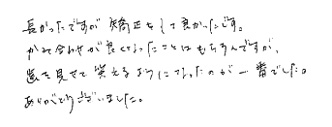 長かったですが矯正をして良かったです。
かみ合わせが良くなったことはもちろんですが、
歯を見せて笑えるようになったのが一番でした。
ありがとうございました。